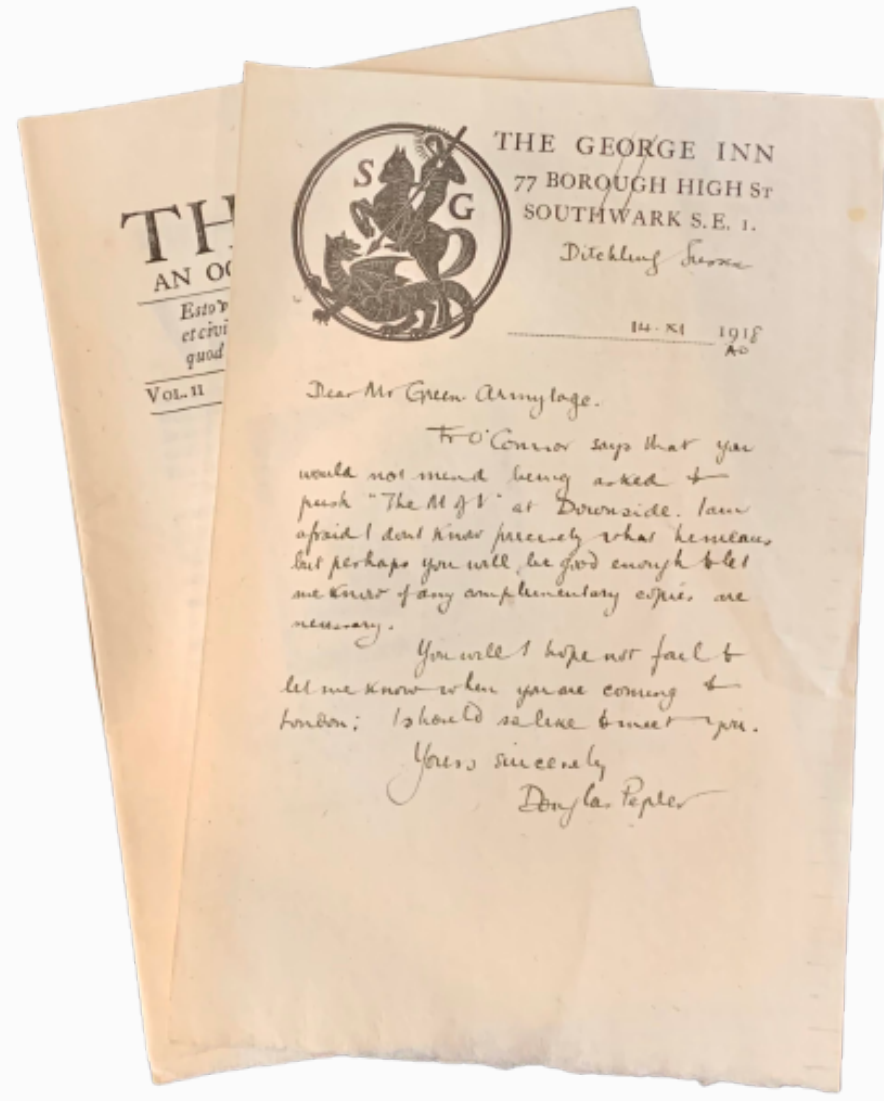 TH
AN OC
Esto
et civi
quod
VOL. II
S G
THE GEORGE INN
77 BOROUGH HIGH ST
SOUTHWARK S.E. 1.
Ditchling Sussex
14. XI 1918
AD
Dear Mr Green-Armytage.
Fr O'Connor says that you
would not mind being asked to
push "The M of V" at Downside. I am
afraid I dont know precisely what he means
but perhaps you will be good enough to let
me know if any complimentary copies are
necessary.
You will I hope not fail to
let me know when you are coming to
London; I should so like to meet you.
Yours sincerely
Douglas Pepler